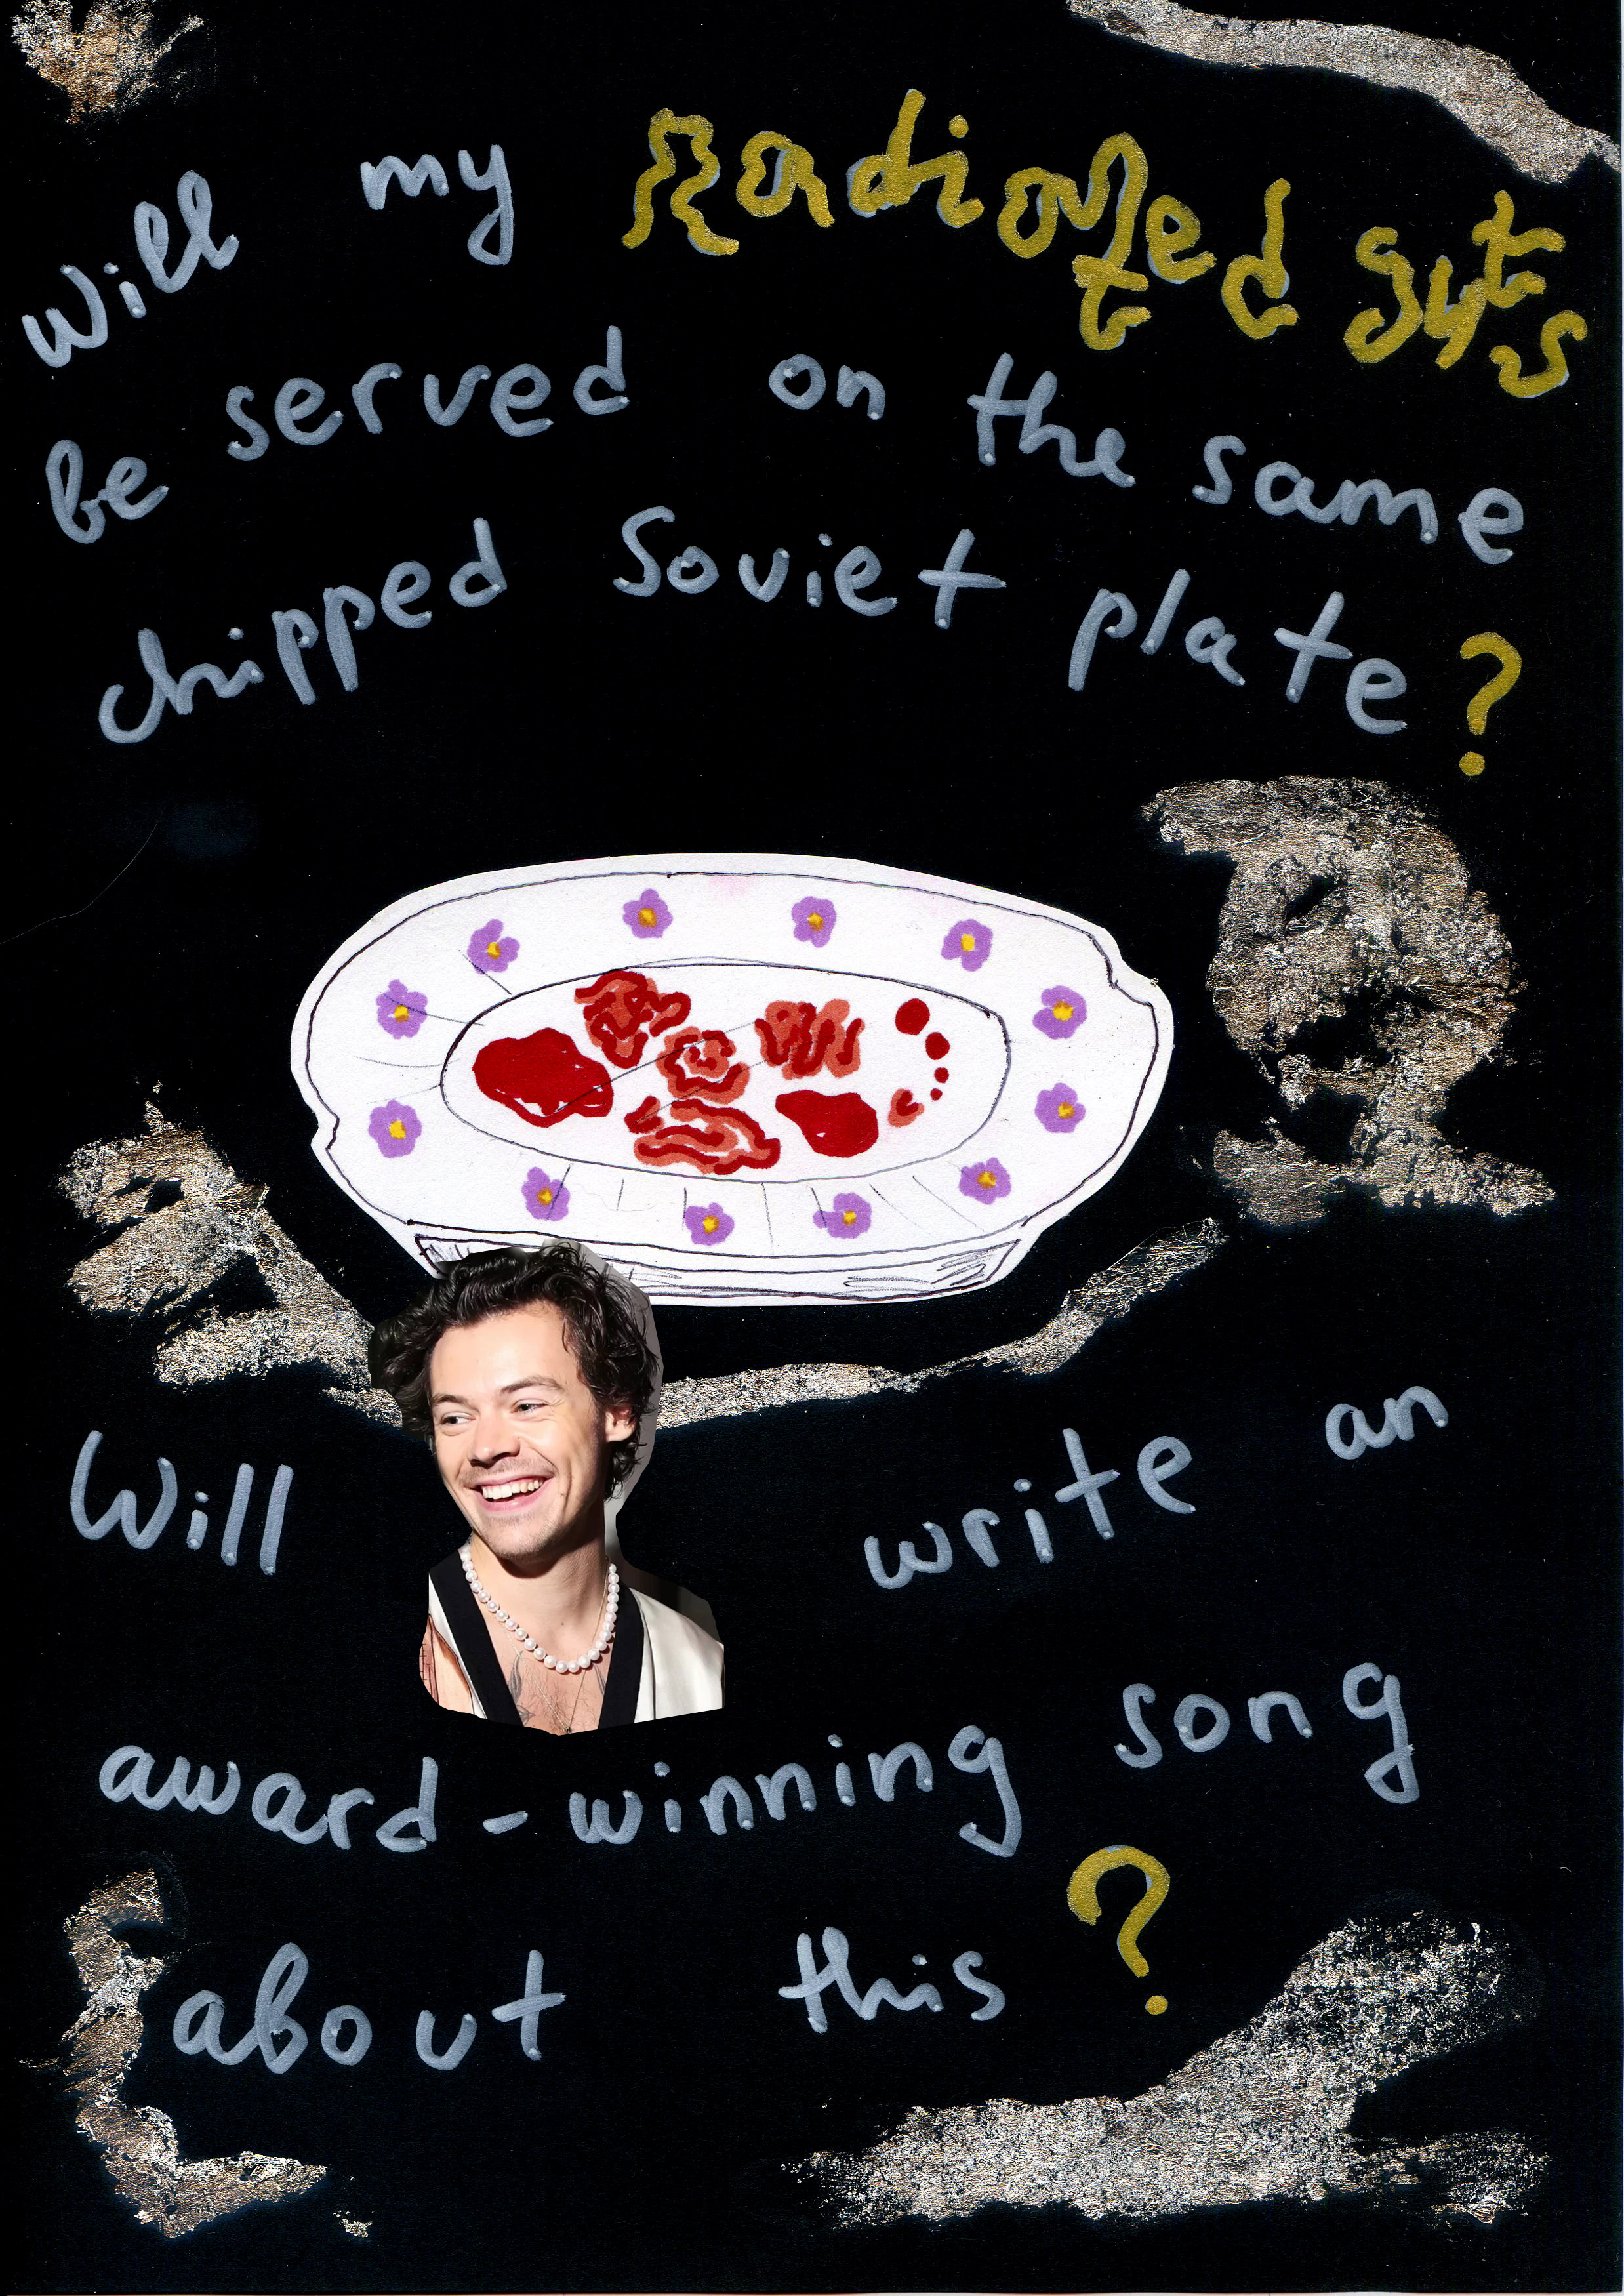 Will my guts
be served on the same
chipped Soviet plate?
Will write an
award-winning song
about this?